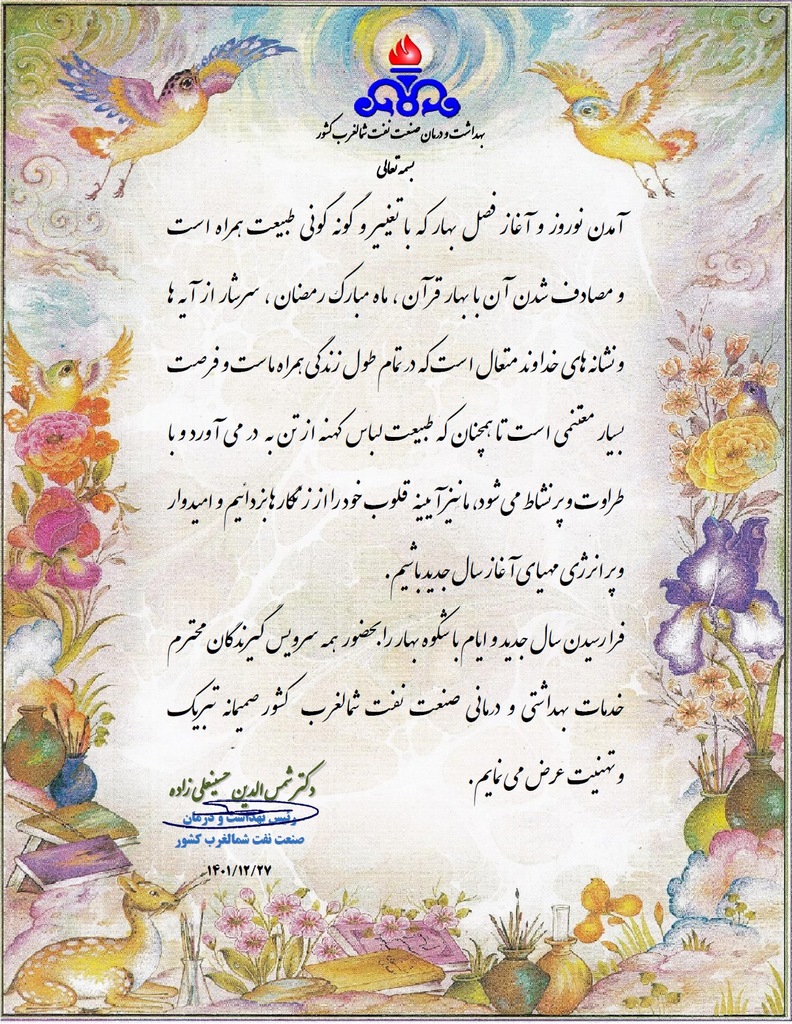 بهداشت و درمان صنعت نفت شمالغرب کشور
بسمه تعالی
آمدن نوروز و آغاز فصل بهار که با تغییر و گونه گونی طبیعت همراه است
و مصادف شدن آن با بهار قرآن ، ماه مبارک رمضان ، سرشار از آیه ها
و نشانه های خداوند متعال است که در تمام طول زندگی همراه ماست و فرصت
بسیار مغتنمی است تا همچنان که طبیعت لباس کهنه از تن به در می آورد و با
طراوت و پر نشاط می شود، ما نیز آیینه قلوب خود را از زنگارها بزدائیم و امیدوار
و پر انرژی مهیای آغاز سال جدید باشیم.
فرا رسیدن سال جدید و ایام با شکوه بهار را بحضور همه سرویس گیرندگان محترم
خدمات بهداشتی و درمانی صنعت نفت شمالغرب کشور صمیمانه تبریک
و تهنیت عرض می نمایم.
دکتر شمس الدین حسینعلی زاده
رئیس بهداشت و درمان
صنعت نفت شمالغرب کشور
۱۴۰۱/۱۲/۲۷